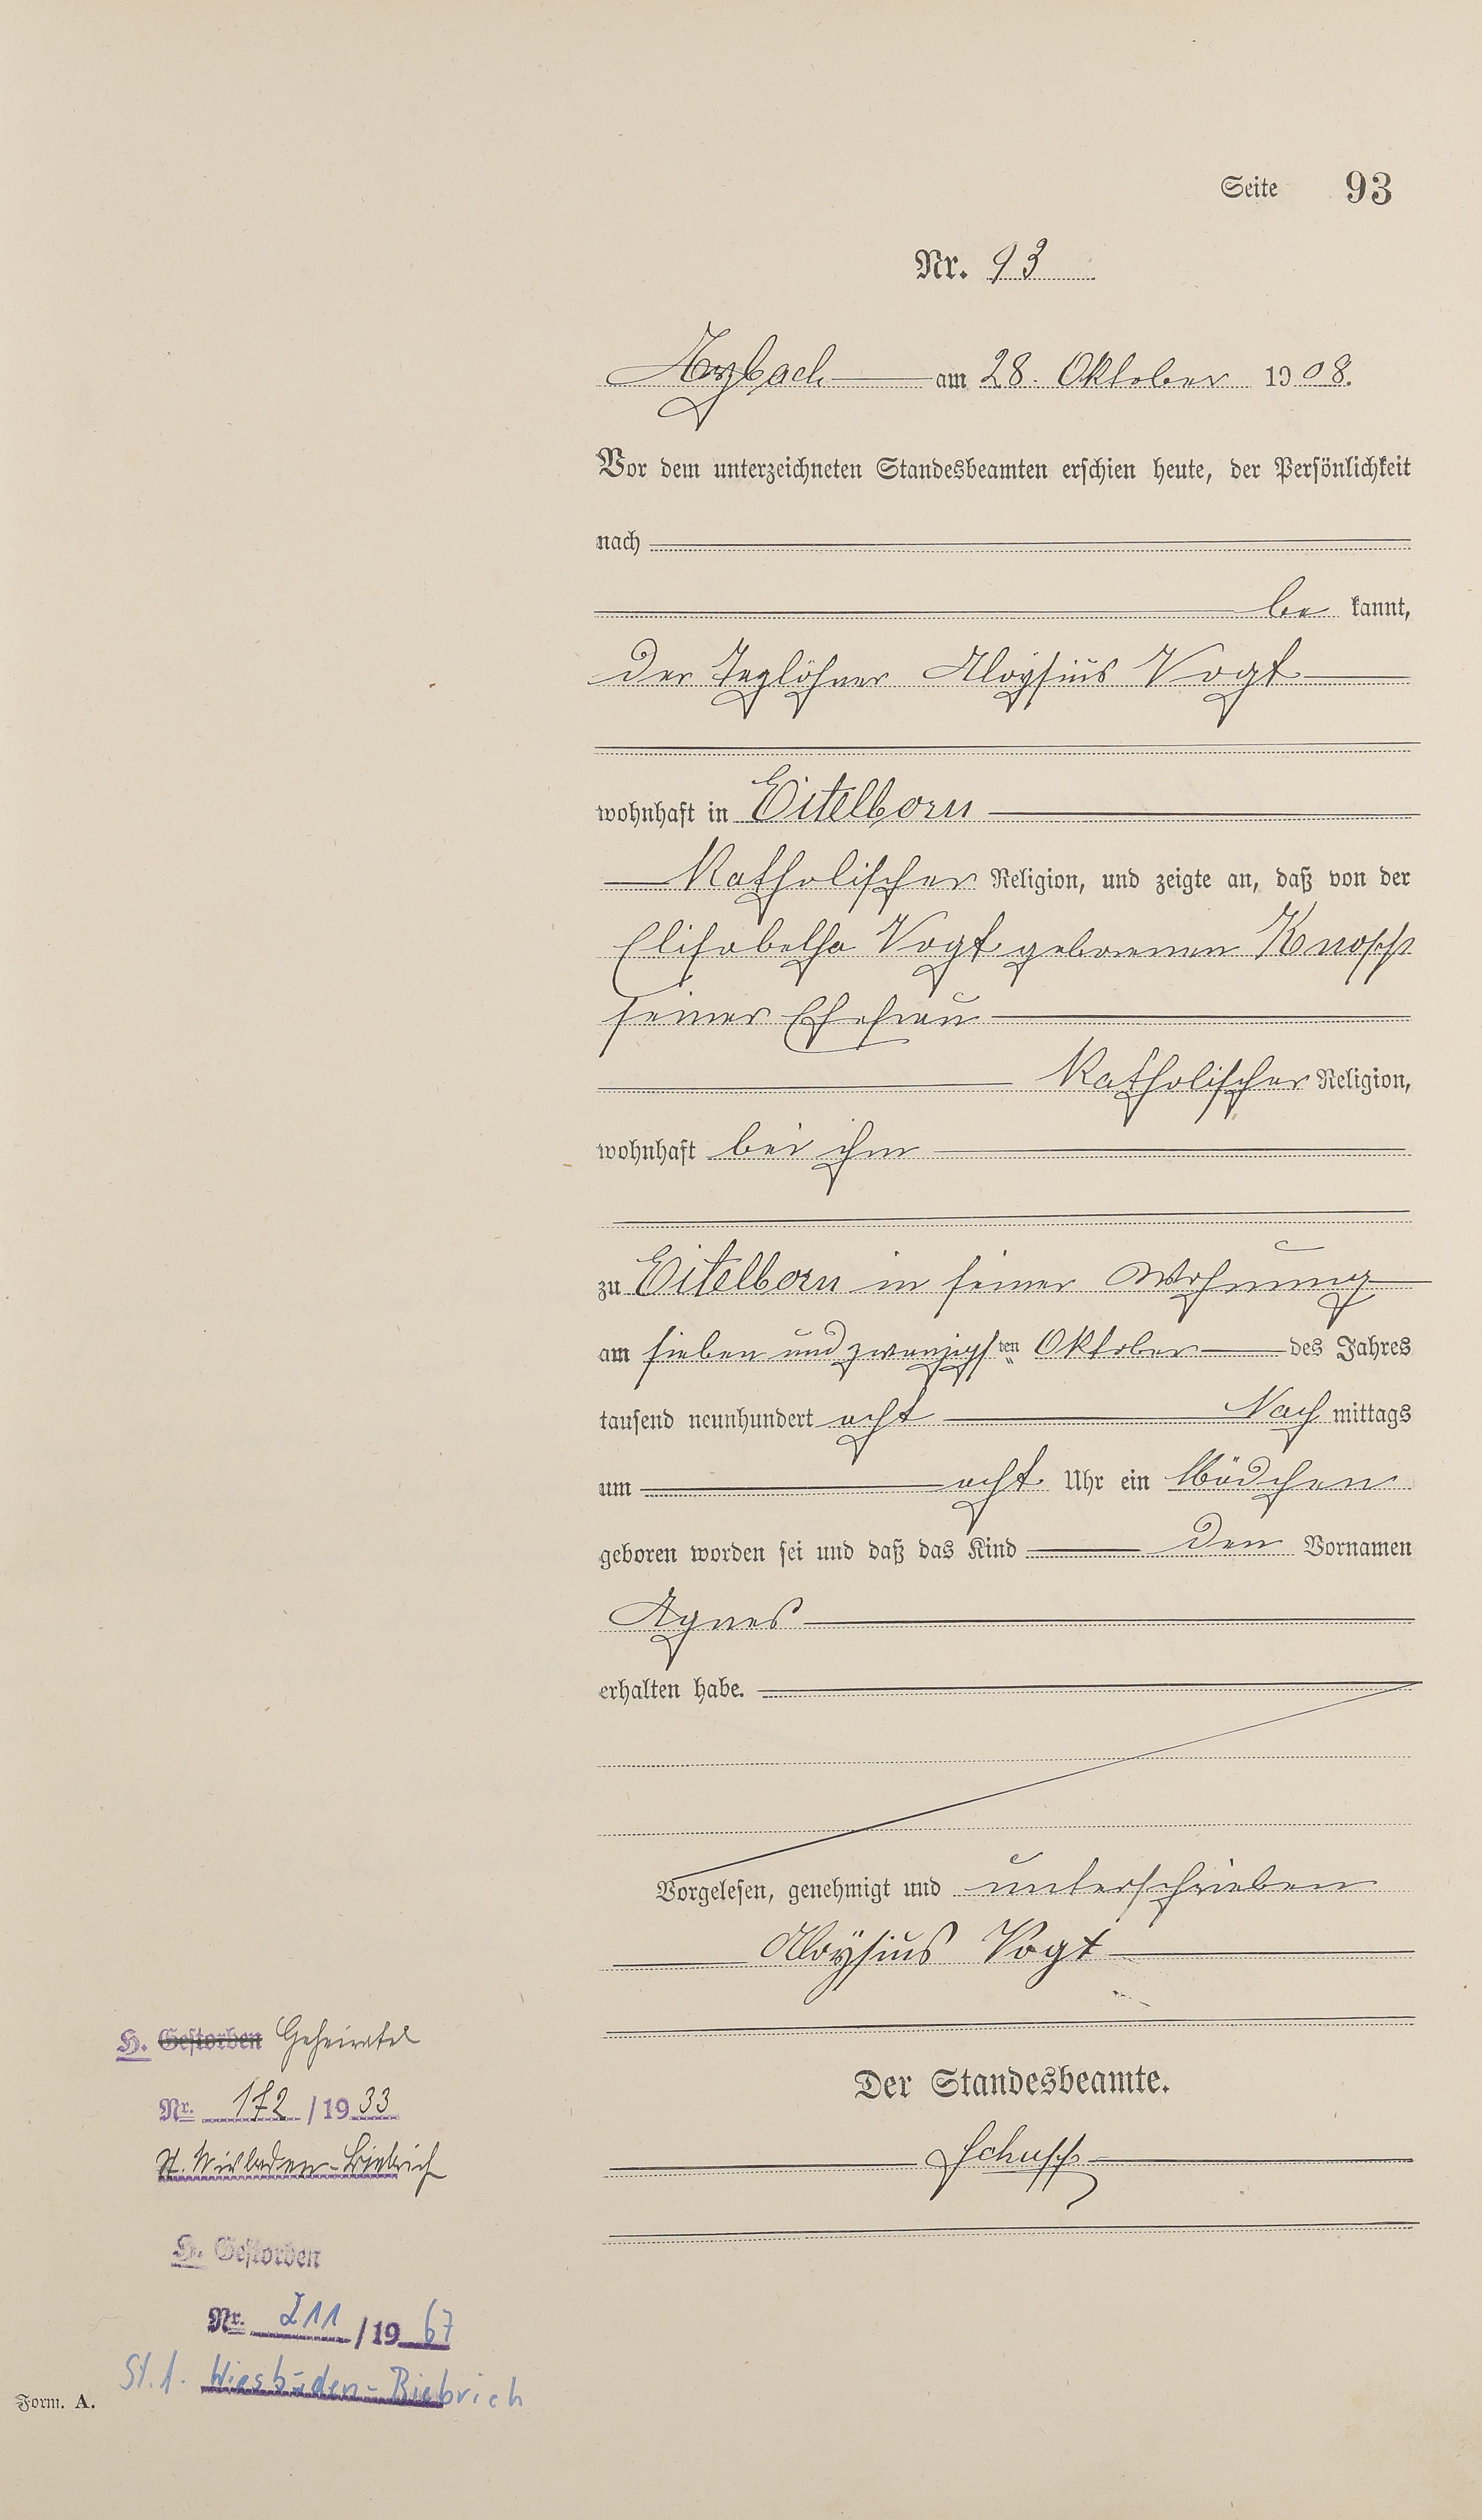 Seite 93
Nr. 93
Arzbach am 28. Oktober 1908.
Vor dem unterzeichneten Standesbeamten erschien heute, der Persönlichkeit
nach
be kannt,
der Taglöhner Aloysius Vogt
wohnhaft in Eitelborn
katholischer Religion, und zeigte an, daß von der
Elisabetha Vogt geborenen Knopp
seiner Ehefrau
katholischer Religion,
wohnhaft bei ihm
zu Eitelborn in seiner Wohnung
am sieben und zwanzigsten Oktober des Jahres
tausend neunhundert acht Nach mittags
um acht Uhr ein Mädchen
geboren worden sei und daß das Kind den Vornamen
Agnes
erhalten habe.
Vorgelesen, genehmigt und unterschrieben
Aloysius Vogt
Der Standesbeamte.
H. Gestorben Geheiratet
Nr. 172 / 1933
St. Wiesbaden-Biebrich
H. Gestorben
Nr. 211 / 1967
St.A. Wiesbaden-Biebrich
Form. A.